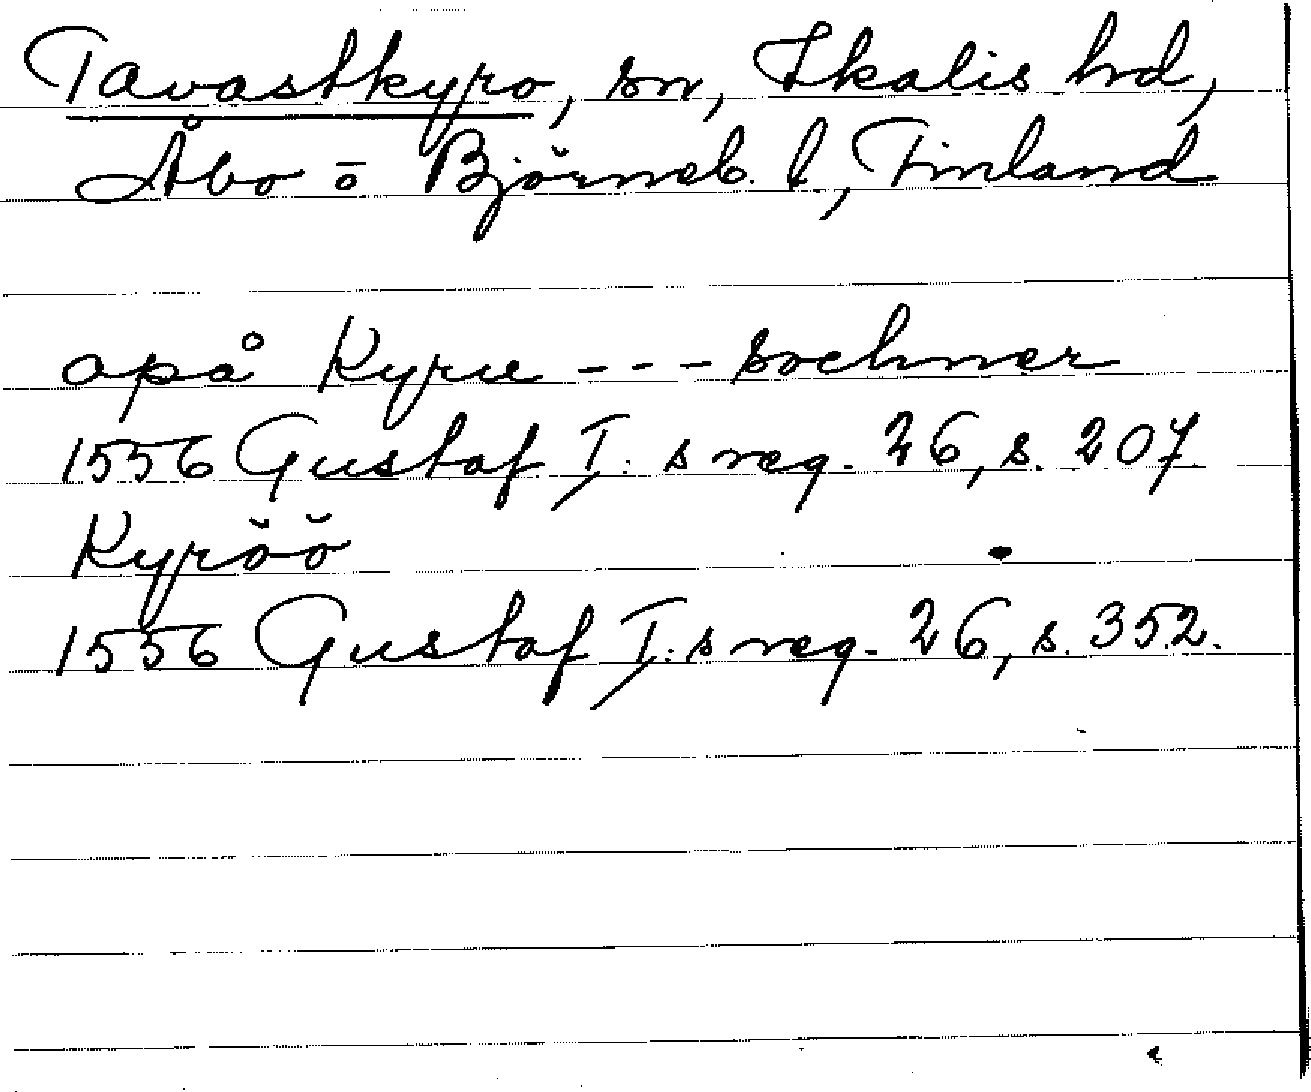 Tavastkyro, sn, Ikalis hd,
Åbo o Björneb. l, Finland
opå Kyrie --- sochner
1556 Gustaf I:s reg. 26, s. 207
Kyröö
1556 Gustaf I:s reg. 26, s. 352.